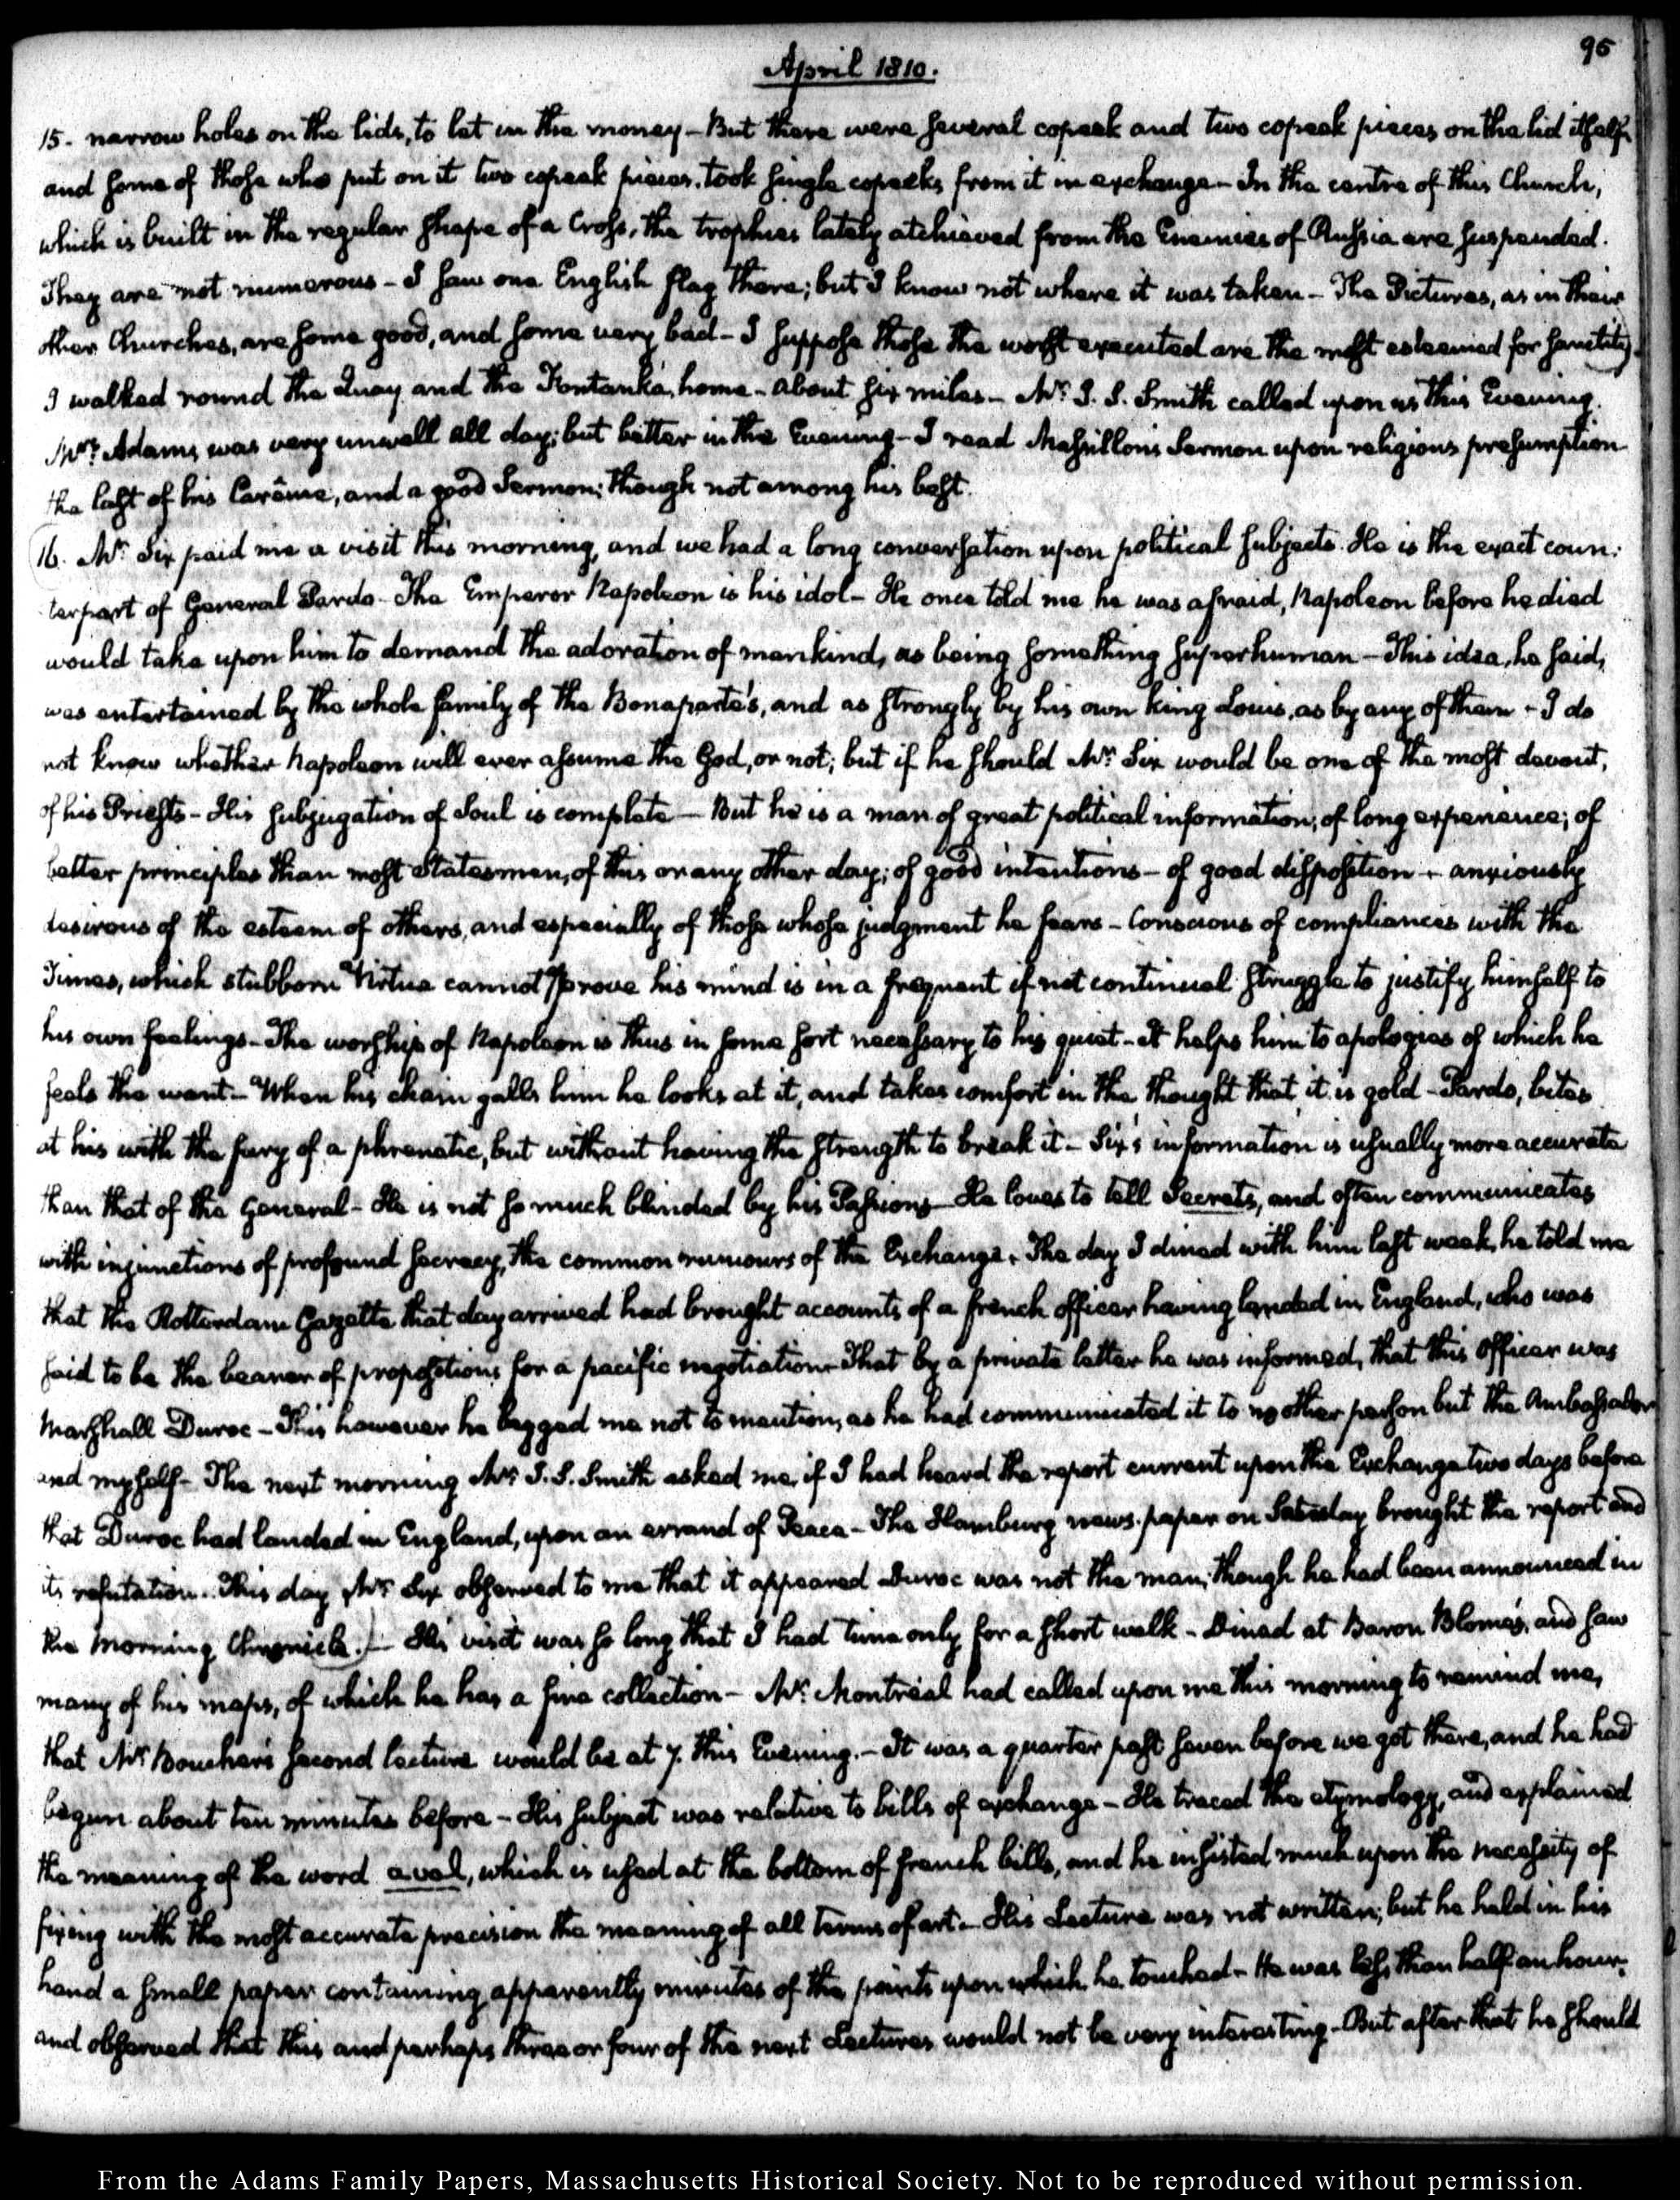 95
April 1810.
15. narrow holes on the lids, to let in the money – But there were several copeek and two copeek pieces on the lid itself
and some of those who put on it two copeek pieces, took single copecks from it in exchange – In the centre of this Church,
which is built in the regular shape of a Cross, the trophies lately atchieved from the Enemies of Russia are suspended.
They are not numerous – I saw one English flag there; but I know not where it was taken – The Pictures, as in their
other Churches, are some good, and some very bad – I suppose those the worst executed are the most esteemed for sanctity.
I walked round the Quay and the Fontanka, home – about six miles – Mr. J. S. Smith called upon us this Evening.
Mrs. Adams was very unwell all day; but better in the Evening – I read Massillon's Sermon upon religious presumption
the last of his Carême, and a good Sermon; though not among his best.
16. Mr. Six paid me a visit this morning, and we had a long conversation upon political subjects. He is the exact coun:
terpart of General Pardo – The Emperor Napoleon is his idol – He once told me he was afraid, Napoleon before he died
would take upon him to demand the adoration of mankind, as being something superhuman – This idea, he said,
was entertained by the whole family of the Bonaparte's, and as strongly by his own king Louis, as by any of them – I do
not know whether Napoleon will ever assume the God, or not; but if he should Mr. Six would be one of the most devout,
of his Priests – His subjugation of Soul is complete – But he is a man of great political information; of long experience; of
better principles than most Statesmen, of this or any other day; of good intentions – of good disposition – anxiously
desirous of the esteem of others, and especially of those whose judgment he fears – Conscious of compliances with the
Times, which stubborn Virtue cannot approve his mind is in a frequent if not continual struggle to justify himself to
his own feelings – The worship of Napoleon is thus in some sort necessary to his quiet – It helps him to apologies of which he
feels the want – When his chain galls him he looks at it, and takes comfort in the thought that it is gold – Pardo, bites
at his with the fury of a phrenetic, but without having the strength to break it – Six's information is usually more accurate
than that of the General – He is not so much blinded by his Passions – He loves to tell Secrets, and often communicates
with injunctions of profound secrecy, the common rumours of the Exchange. The day I dined with him last week, he told me
that the Rotterdam Gazette that day arrived had brought accounts of a french officer having landed in England, who was
said to be the bearer of propositions for a pacific negotiation – That by a private letter he was informed, that this Officer was
Marshall Duroc – This however he begged me not to mention, as he had communicated it to no other person but the Ambassador
and myself – The next morning Mr. J. S. Smith asked me, if I had heard the report current upon the Exchange two days before
that Duroc had landed in England, upon an errand of Peace – The Hamburg news-paper on Saturday brought the report and
its refutation. This day Mr. Six observed to me that it appeared Duroc was not the man, though he had been announced in
the Morning Chronicle. – His visit was so long that I had time only for a short walk – Dined at Baron Blome's, and saw
many of his maps, of which he has a fine collection – Mr. Montréal had called upon me this morning to remind me,
that Mr. Boucher's second lecture would be at 7. this Evening. – It was a quarter past seven before we got there, and he had
begun about ten minutes before – His subject was relative to bills of exchange – He traced the etymology, and explained
the meaning of the word aval, which is used at the bottom of french bills, and he insisted much upon the necessity of
fixing with the most accurate precision the meaning of all terms of art – His Lecture was not written; but he held in his
hand a small paper containing apparently minutes of the points upon which he touched – He was less than half an hour;
and observed that this and perhaps three or four of the next Lectures would not be very interesting – But after that he should
From the Adams Family Papers, Massachusetts Historical Society. Not to be reproduced without permission.